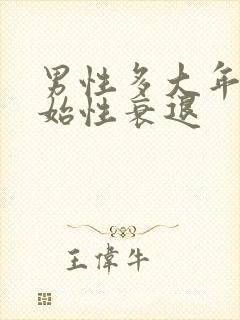 男性多大年
始性衰退
王偉牛